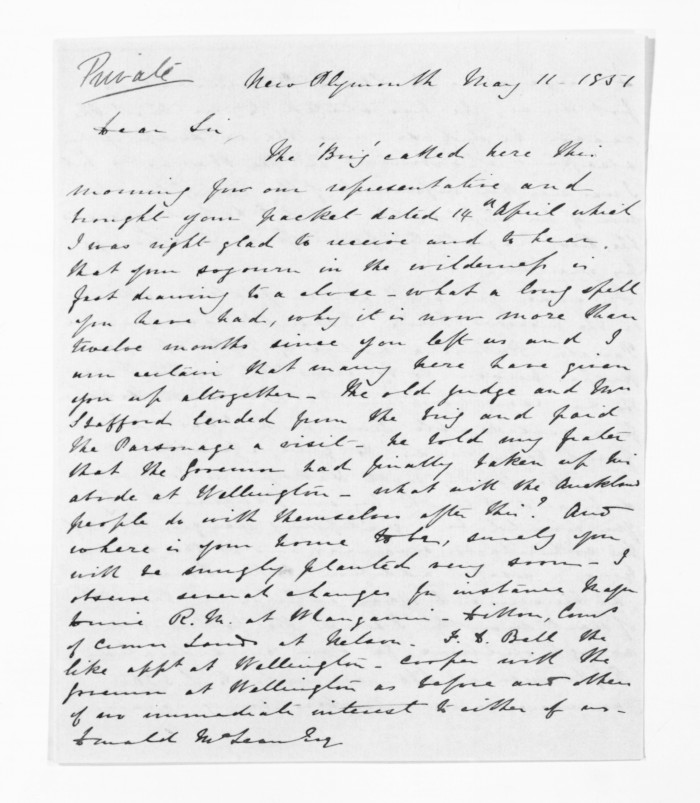 Private
New Plymouth May 11 - 1851
Dear Sir,
The 'Brig' called here this
morning for our representative and
brought your packet dated 14th April which
I was right glad to receive and to hear
that your sojourn in the wilderness is
fast drawing to a close - what a long spell
you have had, why it is now more than
twelve months since you left us and I
am certain that many here have given
you up altogether - The old judge and Mrs
Stafford landed from the brig and paid
the Parsonage a visit - he told my frater
that the Governor had finally taken up his
abode at Wellington - what will the Auckland
people do with themselves after this? And
where is your home to be, surely you
will be snugly planted very soon - I
observe several changes for instance Major
R.M. at Wanganui - Comr
of Crown Lands at Nelson. F. D. Bell the
like appt at Wellington - Cooper with the
Governor at Wellington as before and others
of no immediate interest to either of us -
Donald McLean Esq